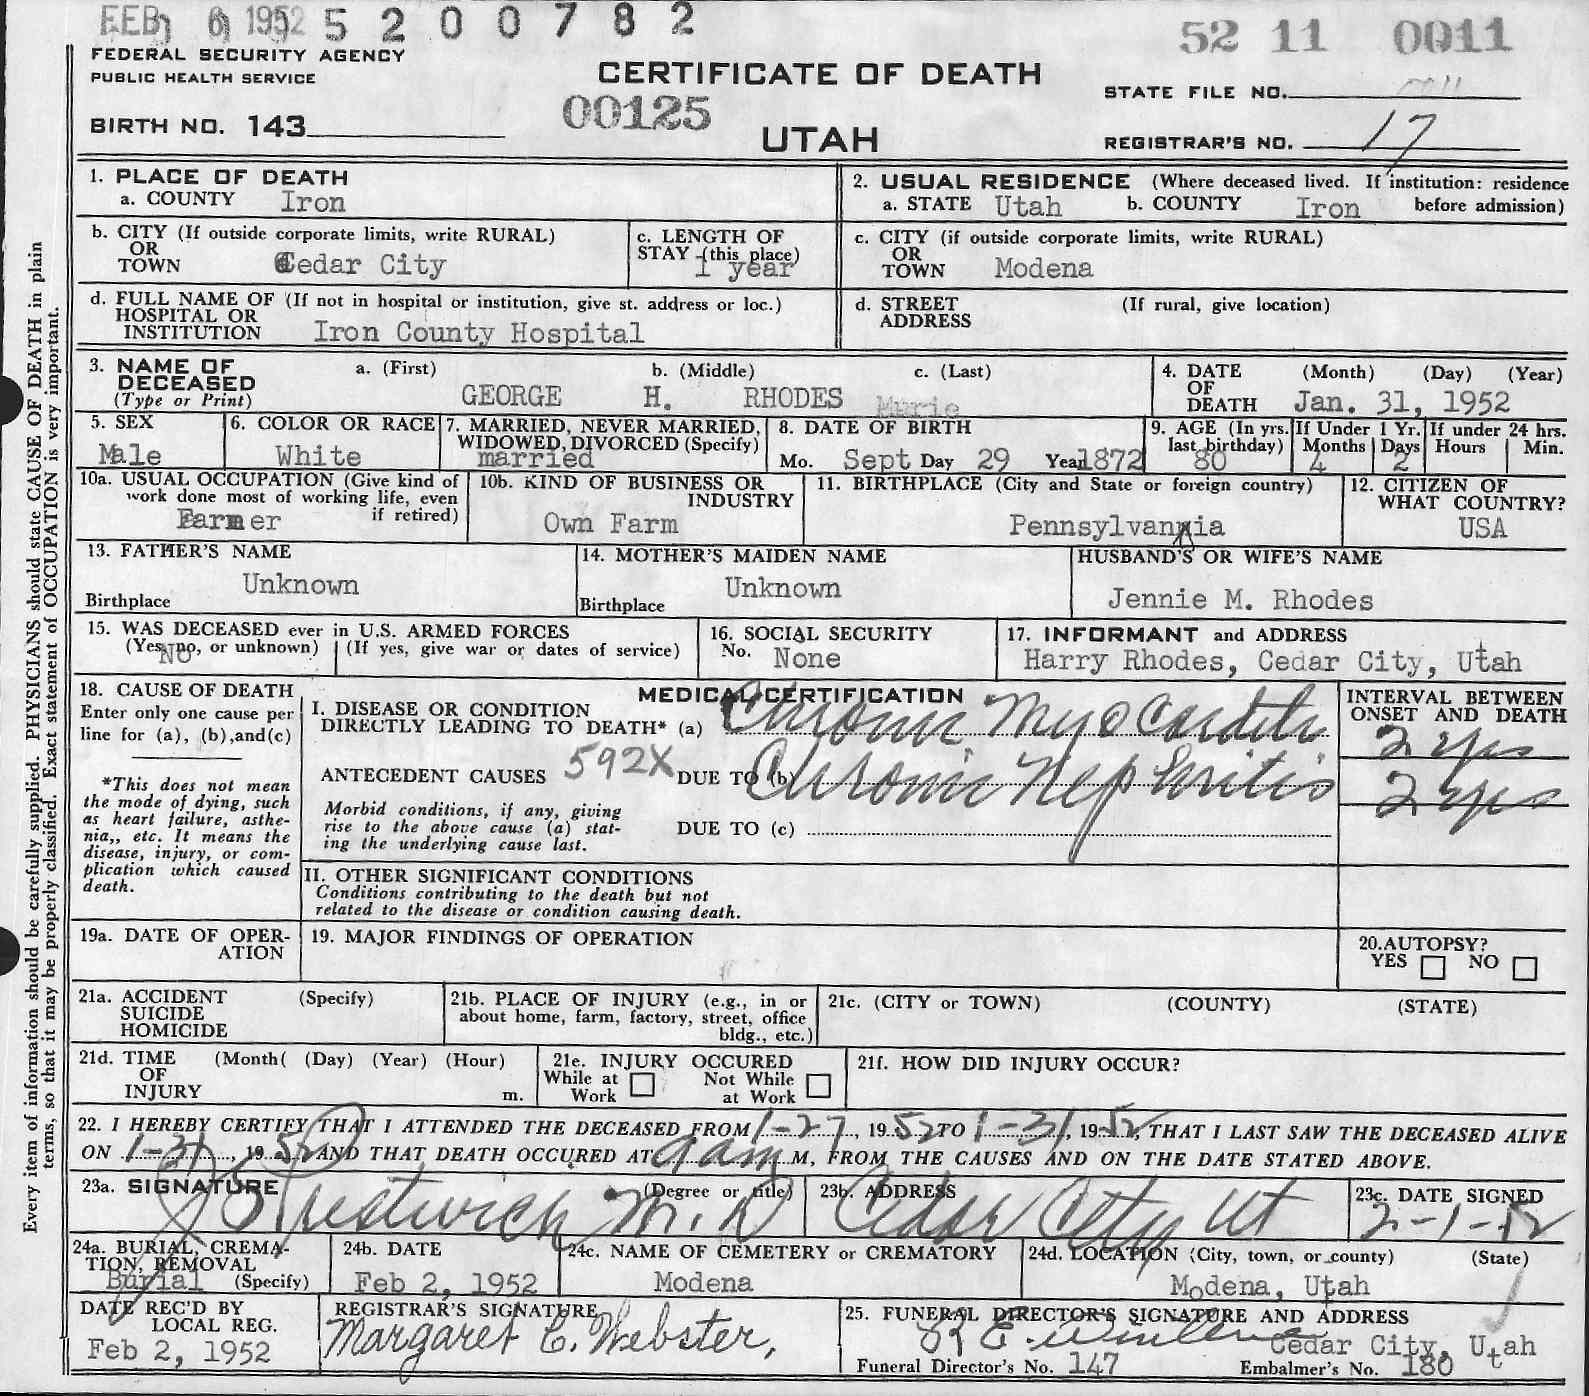 FEB 6 1952 5 2 0 0 7 8 2
52 11 0011
FEDERAL SECURITY AGENCY
PUBLIC HEALTH SERVICE
CERTIFICATE OF DEATH
STATE FILE NO.
BIRTH NO. 143
00125
UTAH
REGISTRAR'S NO. 17
Every item of information should be carefully supplied. PHYSICIANS should state CAUSE OF DEATH in plain
terms, so that it may be properly classified. Exact statement of OCCUPATION is very important.
1. PLACE OF DEATH
a. COUNTY Iron
2. USUAL RESIDENCE (Where deceased lived. If institution: residence
a. STATE Utah b. COUNTY Iron before admission)
b. CITY (If outside corporate limits, write RURAL)
OR
TOWN Cedar City
c. LENGTH OF
STAY (this place)
1 year
c. CITY (if outside corporate limits, write RURAL)
OR
TOWN Modena
d. FULL NAME OF (If not in hospital or institution, give st. address or loc.)
HOSPITAL OR
INSTITUTION Iron County Hospital
d. STREET (If rural, give location)
ADDRESS
3. NAME OF DECEASED
(Type or Print)
a. (First) b. (Middle) c. (Last)
GEORGE H. RHODES Murie
4. DATE (Month) (Day) (Year)
OF
DEATH Jan. 31, 1952
5. SEX
Male
6. COLOR OR RACE
White
7. MARRIED, NEVER MARRIED,
WIDOWED, DIVORCED (Specify)
married
8. DATE OF BIRTH
Mo. Sept Day 29 Year 1872
9. AGE (In yrs.
last birthday)
80
If Under 1 Yr.
Months Days
4 2
If under 24 hrs.
Hours Min.
10a. USUAL OCCUPATION (Give kind of
work done most of working life, even
if retired)
Farmer
10b. KIND OF BUSINESS OR
INDUSTRY
Own Farm
11. BIRTHPLACE (City and State or foreign country)
Pennsylvania
12. CITIZEN OF
WHAT COUNTRY?
USA
13. FATHER'S NAME
Unknown
Birthplace
14. MOTHER'S MAIDEN NAME
Unknown
Birthplace
HUSBAND'S OR WIFE'S NAME
Jennie M. Rhodes
15. WAS DECEASED ever in U.S. ARMED FORCES
(Yes, no, or unknown) (If yes, give war or dates of service)
No
16. SOCIAL SECURITY
No. None
17. INFORMANT and ADDRESS
Harry Rhodes, Cedar City, Utah
18. CAUSE OF DEATH
Enter only one cause per
line for (a), (b),and(c)
*This does not mean
the mode of dying, such
as heart failure, asthe-
nia,, etc. It means the
disease, injury, or com-
plication which caused
death.
MEDICAL CERTIFICATION
I. DISEASE OR CONDITION
DIRECTLY LEADING TO DEATH* (a) Chronic Myocarditis
ANTECEDENT CAUSES 592X DUE TO (b) Chronic Nephritis
Morbid conditions, if any, giving
rise to the above cause (a) stat-
ing the underlying cause last.
DUE TO (c)
INTERVAL BETWEEN
ONSET AND DEATH
2 yrs
2 yrs
II. OTHER SIGNIFICANT CONDITIONS
Conditions contributing to the death but not
related to the disease or condition causing death.
19a. DATE OF OPER-
ATION
19. MAJOR FINDINGS OF OPERATION
20.AUTOPSY?
YES NO
21a. ACCIDENT (Specify)
SUICIDE
HOMICIDE
21b. PLACE OF INJURY (e.g., in or
about home, farm, factory, street, office
bldg., etc.)
21c. (CITY or TOWN) (COUNTY) (STATE)
21d. TIME (Month( (Day) (Year) (Hour)
OF
INJURY m.
21e. INJURY OCCURED
While at Work Not While at Work
21f. HOW DID INJURY OCCUR?
22. I HEREBY CERTIFY THAT I ATTENDED THE DECEASED FROM 1-27, 1952 TO 1-31, 1952, THAT I LAST SAW THE DECEASED ALIVE
ON 1-31, 1952 AND THAT DEATH OCCURED AT 9 am M, FROM THE CAUSES AND ON THE DATE STATED ABOVE.
23a. SIGNATURE (Degree or title)
Prestwich M.D
23b. ADDRESS
Cedar City Ut
23c. DATE SIGNED
2-1-52
24a. BURIAL, CREMA-
TION, REMOVAL
Burial (Specify)
24b. DATE
Feb 2, 1952
24c. NAME OF CEMETERY or CREMATORY
Modena
24d. LOCATION (City, town, or county) (State)
Modena, Utah
DATE REC'D BY
LOCAL REG.
Feb 2, 1952
REGISTRAR'S SIGNATURE
Margaret C. Webster,
25. FUNERAL DIRECTOR'S SIGNATURE AND ADDRESS
Cedar City, Utah
Funeral Director's No. 147 Embalmer's No. 180